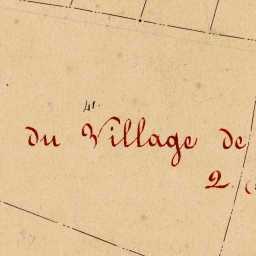 41.
du Village de
2.